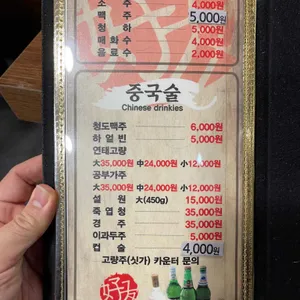 소 주 4,000원
맥 주 5,000원
청 하 5,000원
매 화 수 4,000원
음 료 수 2,000원
중국술
Chinese drinkies
청도맥주 6,000원
하 얼 빈 5,000원
연태고량
大35,000원 中24,000원 小12,000원
공부가주
大35,000원 中24,000원 小12,000원
설 원 大(450g) 15,000원
죽 엽 청 35,000원
경 주 35,000원
이과두주 5,000원
컵 술 4,000원
고량주(싯가) 카운터 문의